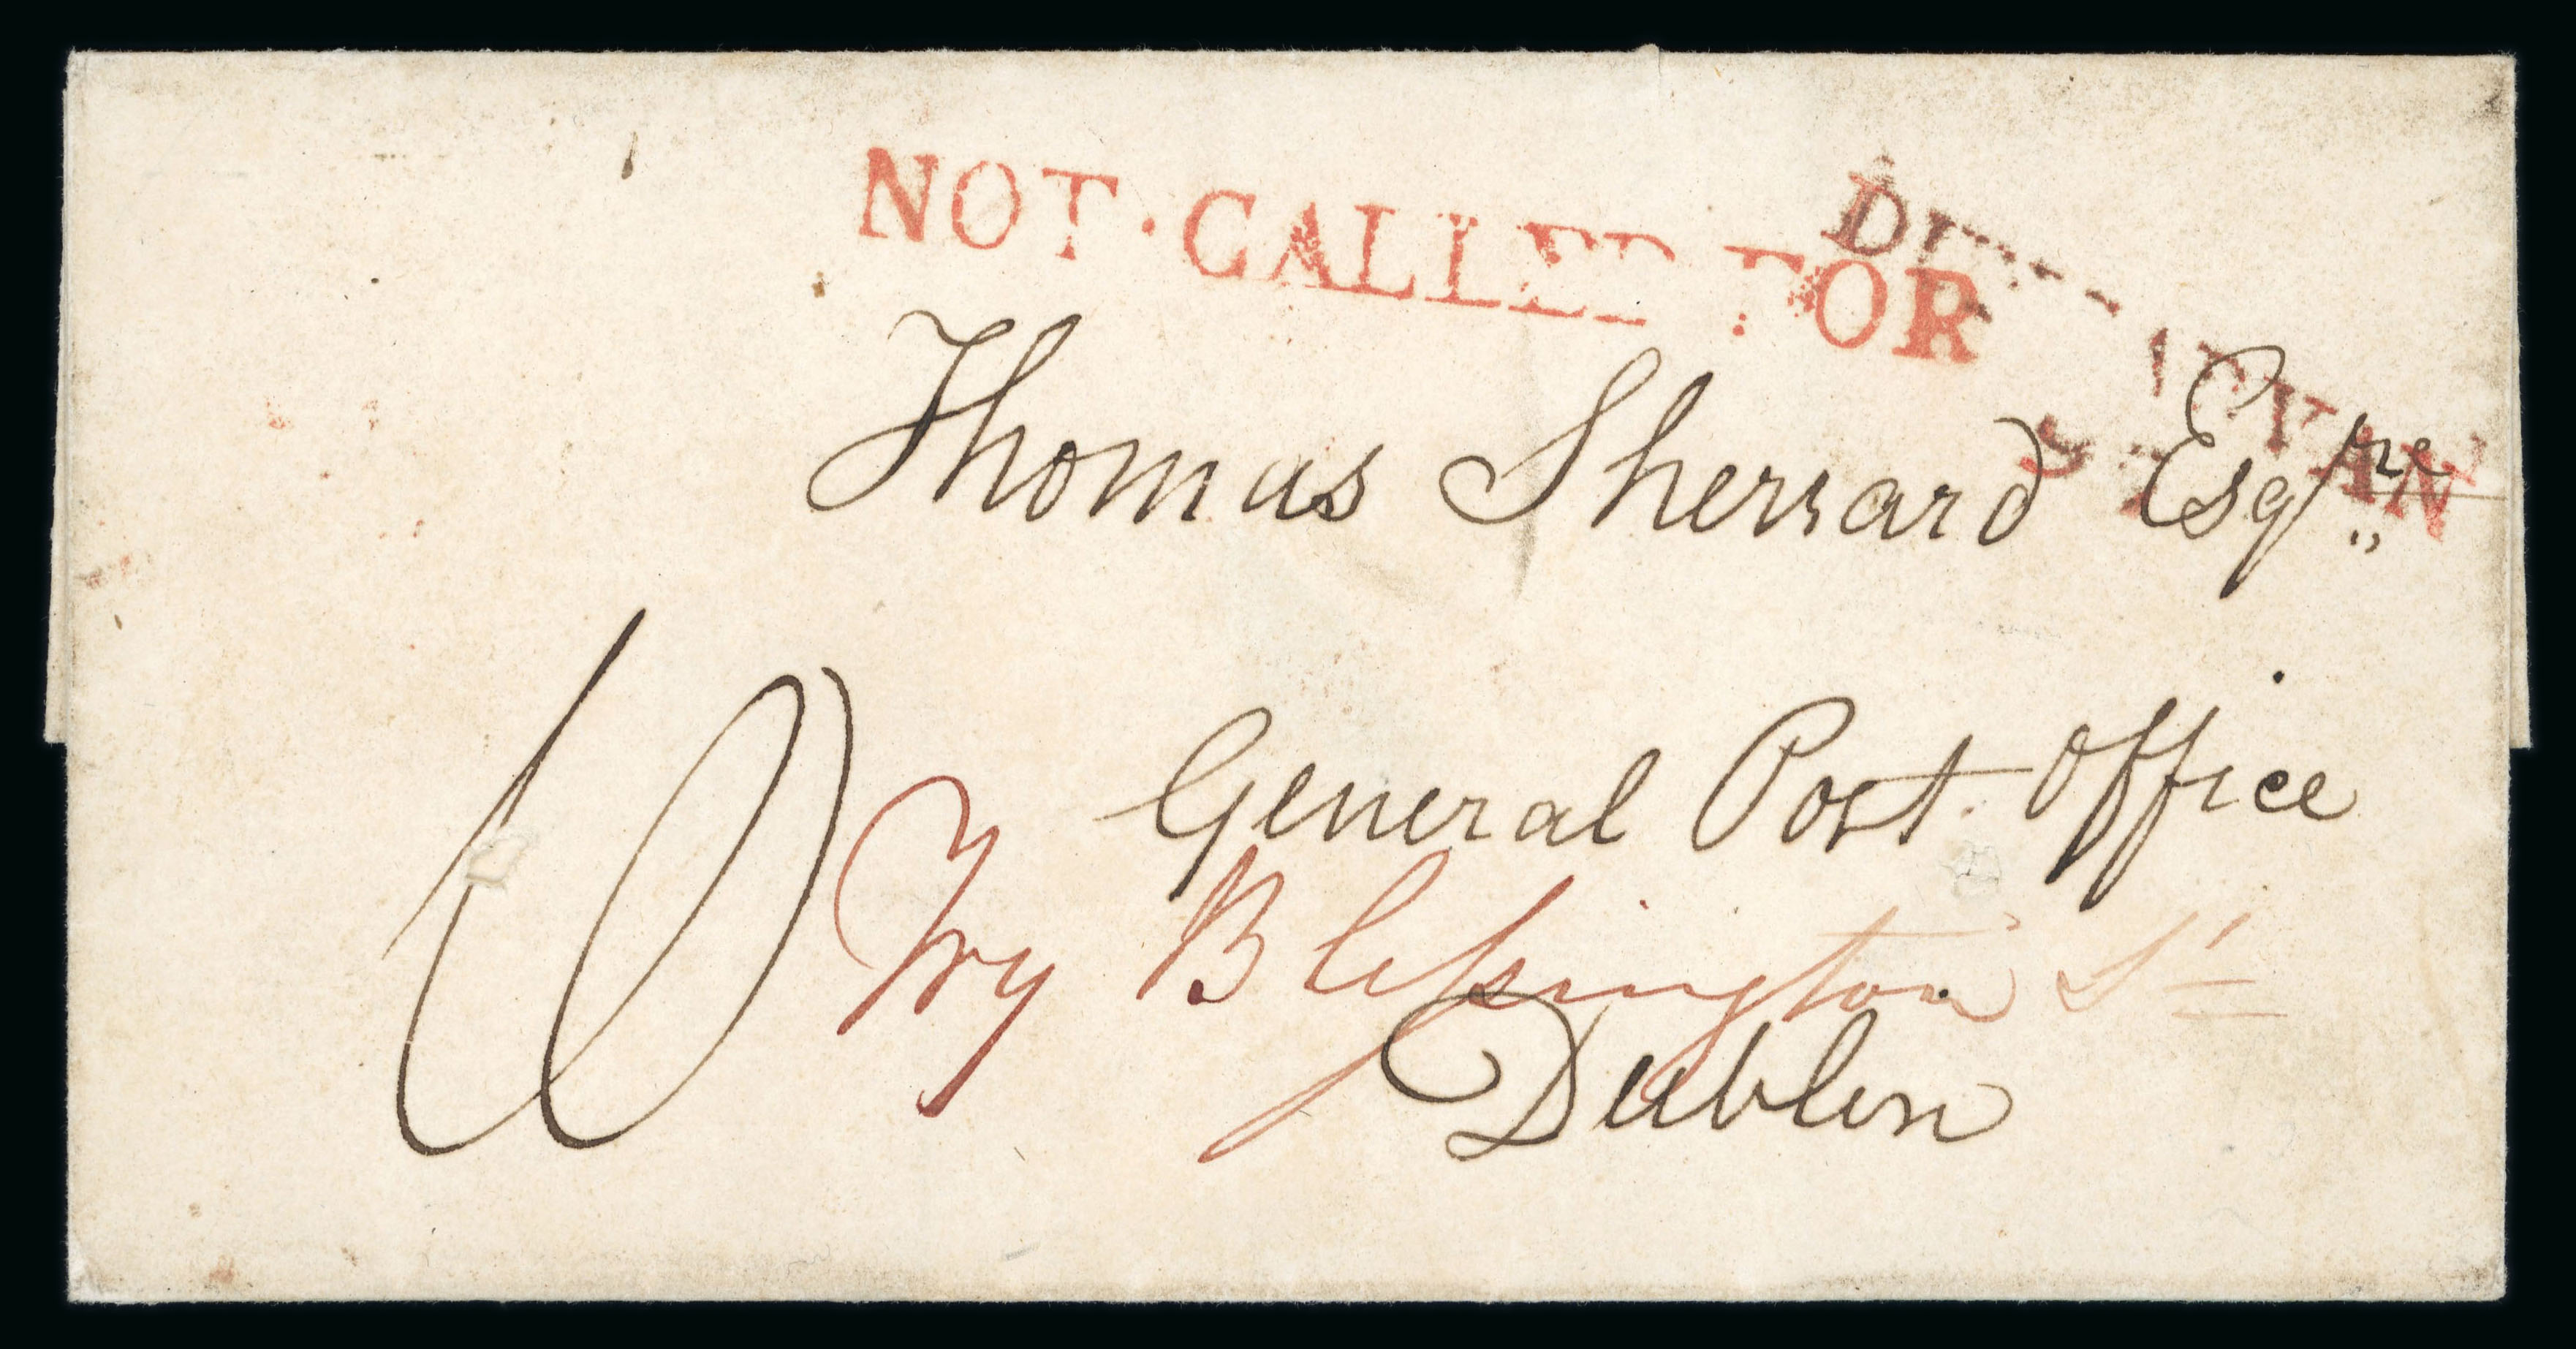 NOT·CALLED FOR
Thomas Sherrard Esqre
10
General Post Office
Try Blessington St
Dublin